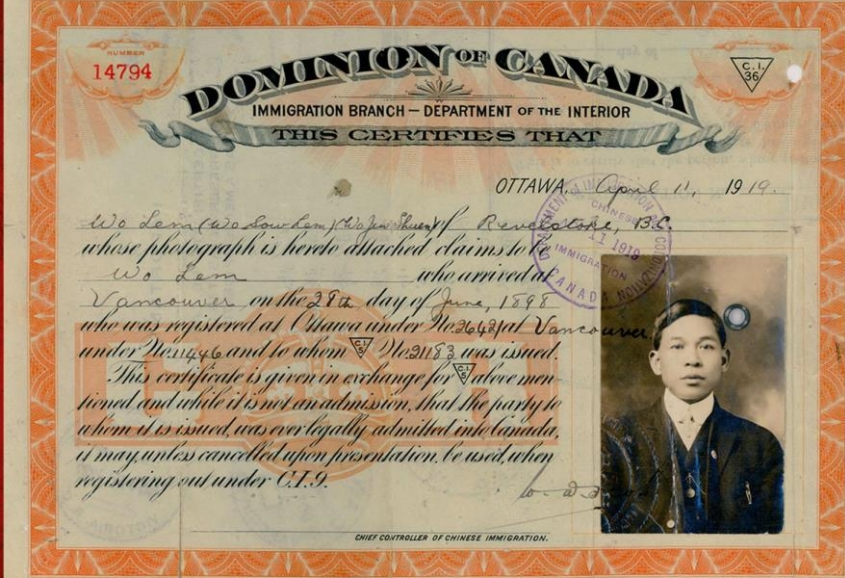 NUMBER
14794
C.I.
36
DOMINION OF CANADA
IMMIGRATION BRANCH — DEPARTMENT OF THE INTERIOR
THIS CERTIFIES THAT
OTTAWA, April 11, 1919.
Wo Lem (Wo Sow Lem) (Wo Jin Shuey) of Revelstoke, B.C.
whose photograph is hereto attached claims to be
Wo Lem who arrived at
Vancouver on the 28th day of June, 1898
who was registered at Ottawa under No. 26421 at Vancouver
under No. 11446 and to whom C.I. 5 No. 21183 was issued.
This certificate is given in exchange for C.I. 5 above men-
tioned and while it is not an admission, that the party to
whom it is issued, was ever legally admitted into Canada,
it may, unless cancelled upon presentation, be used, when
registering out under C.I.9.
DEPARTMENT OF IMMIGRATION & COLONIZATION
CHINESE
11 1919
IMMIGRATION
CANADA
CHIEF CONTROLLER OF CHINESE IMMIGRATION.